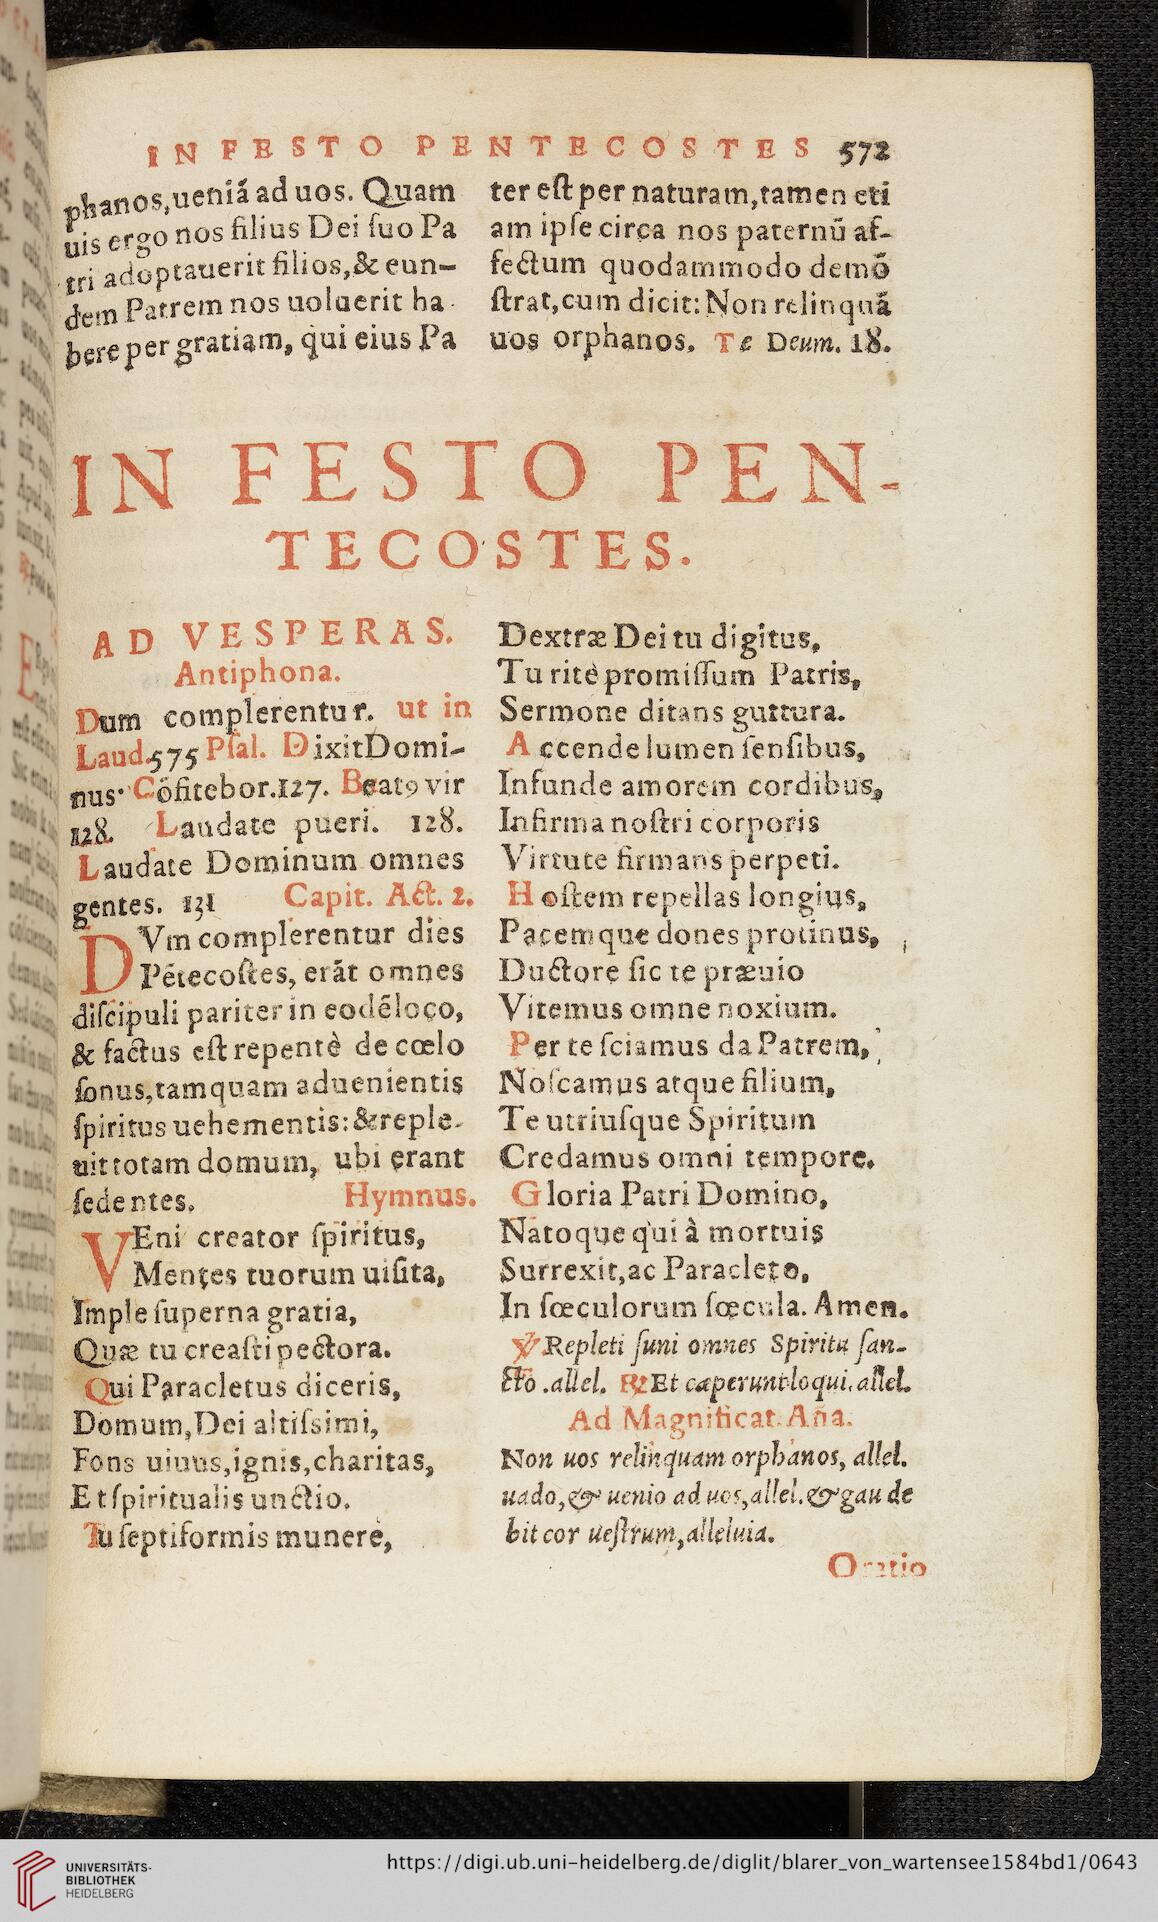 IN FESTO PENTECOSTES 572
phanos,ueniá ad uos. Quam
uis ergo nos filius Dei ſuo Pa
tri adoptauerit filios,& eun-
dem Patrem nos uoluerit ha
bere per gratiam, qui eius Pa
ter eſt per naturam,tamen eti
am ipſe circa nos paternũ af-
fectum quodammodo demõ
ſtrat,cum dicit: Non relinquã
uos orphanos. Te Deum. 18.
IN FESTO PEN-
TECOSTES.
AD VESPERAS.
Antiphona.
Dum complerentur. ut in
Laud.575 Pſal. Dixit Domi-
nus. Cõfitebor.127. Beatꝯ vir
128. Laudate pueri. 128.
Laudate Dominum omnes
gentes. 131 Capit. Act. 2.
DVm complerentur dies
Pẽtecoſtes, erãt omnes
diſcipuli pariter in eodẽ loco,
& factus eſt repentè de cœlo
ſonus,tamquam aduenientis
ſpiritus uehementis:& reple-
uit totam domum, ubi erant
ſedentes. Hymnus.
VEni creator ſpiritus,
Mentes tuorum uiſita,
Imple ſuperna gratia,
Quæ tu creaſti pectora.
Qui Paracletus diceris,
Domum,Dei altiſsimi,
Fons uiuus,ignis,charitas,
Et ſpiritualis unctio.
Tu ſeptiformis munere,
Dextræ Dei tu digitus,
Tu ritè promiſſum Patris,
Sermone ditans guttura.
Accende lumen ſenſibus,
Infunde amorem cordibus,
Infirma noſtri corporis
Virtute firmans perpeti.
Hoſtem repellas longius,
Pacemque dones protinus,
Ductore ſic te præuio
Vitemus omne noxium.
Per te ſciamus da Patrem,
Noſcamus atque filium,
Te utriuſque Spiritum
Credamus omni tempore.
Gloria Patri Domino,
Natoque qui à mortuis
Surrexit,ac Paracleto,
In ſœculorum ſœcula. Amen.
℣ Repleti ſuni omnes Spiritu ſan-
cto .allel. ℟ Et cæperunt loqui.allel.
Ad Magnificat. Aña.
Non uos relinquam orphanos, allel.
uado,& uenio ad uos,allel.& gaude
bit cor ueſtrum,alleluia.
Oratio
UNIVERSITÄTS-
BIBLIOTHEK
HEIDELBERG
https://digi.ub.uni-heidelberg.de/diglit/blarer_von_wartensee1584bd1/0643